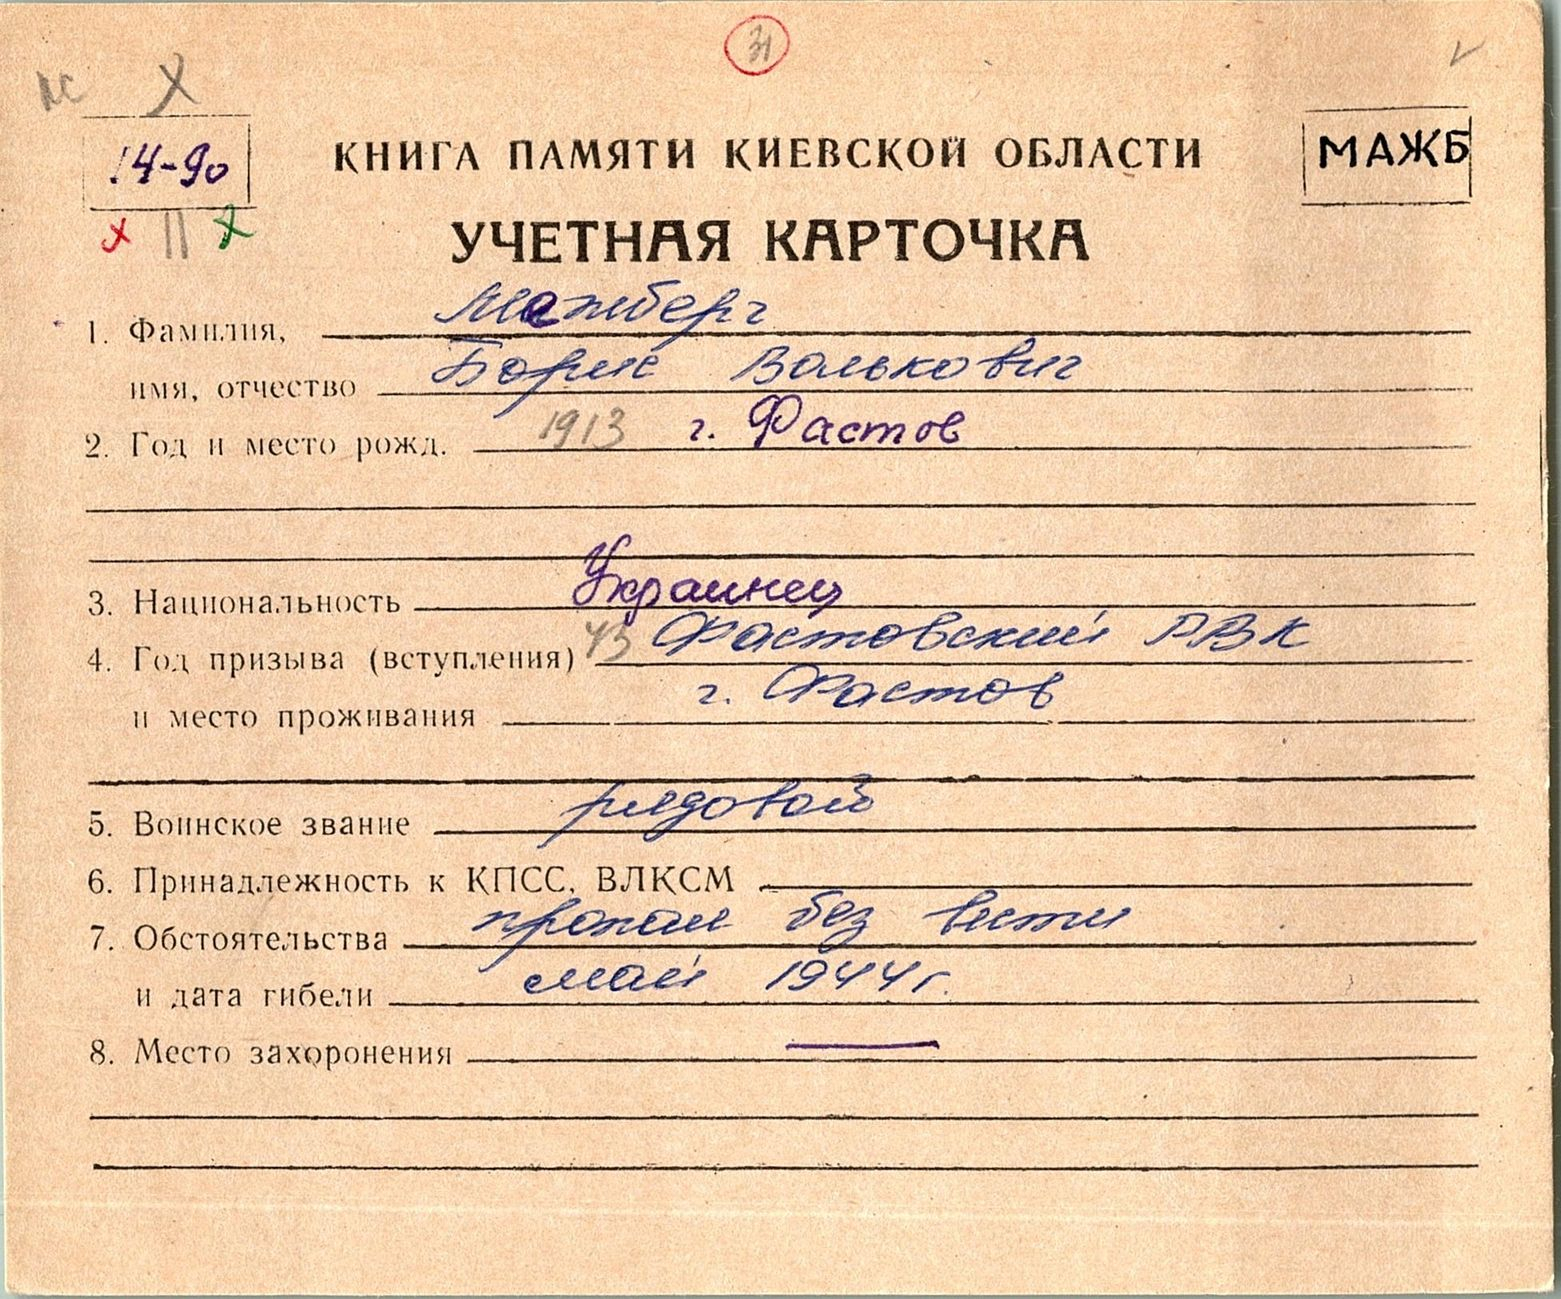 31
14-90
КНИГА ПАМЯТИ КИЕВСКОЙ ОБЛАСТИ
МАЖБ
УЧЕТНАЯ КАРТОЧКА
1. Фамилия, Межберг
имя, отчество Борис Волькович
2. Год и место рожд. 1913 г. Фастов
3. Национальность Украинец
4. Год призыва (вступления) 43 Фастовский РВК
и место проживания г. Фастов
5. Воинское звание рядовой
6. Принадлежность к КПСС, ВЛКСМ
7. Обстоятельства пропал без вести
и дата гибели май 1944 г.
8. Место захоронения —